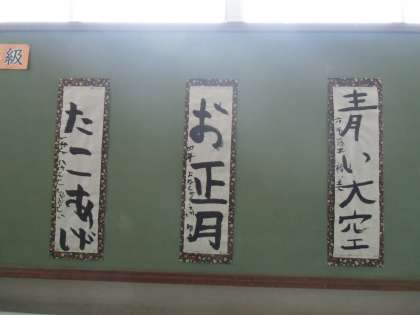 級
青い大空
お正月
四年
たこあげ